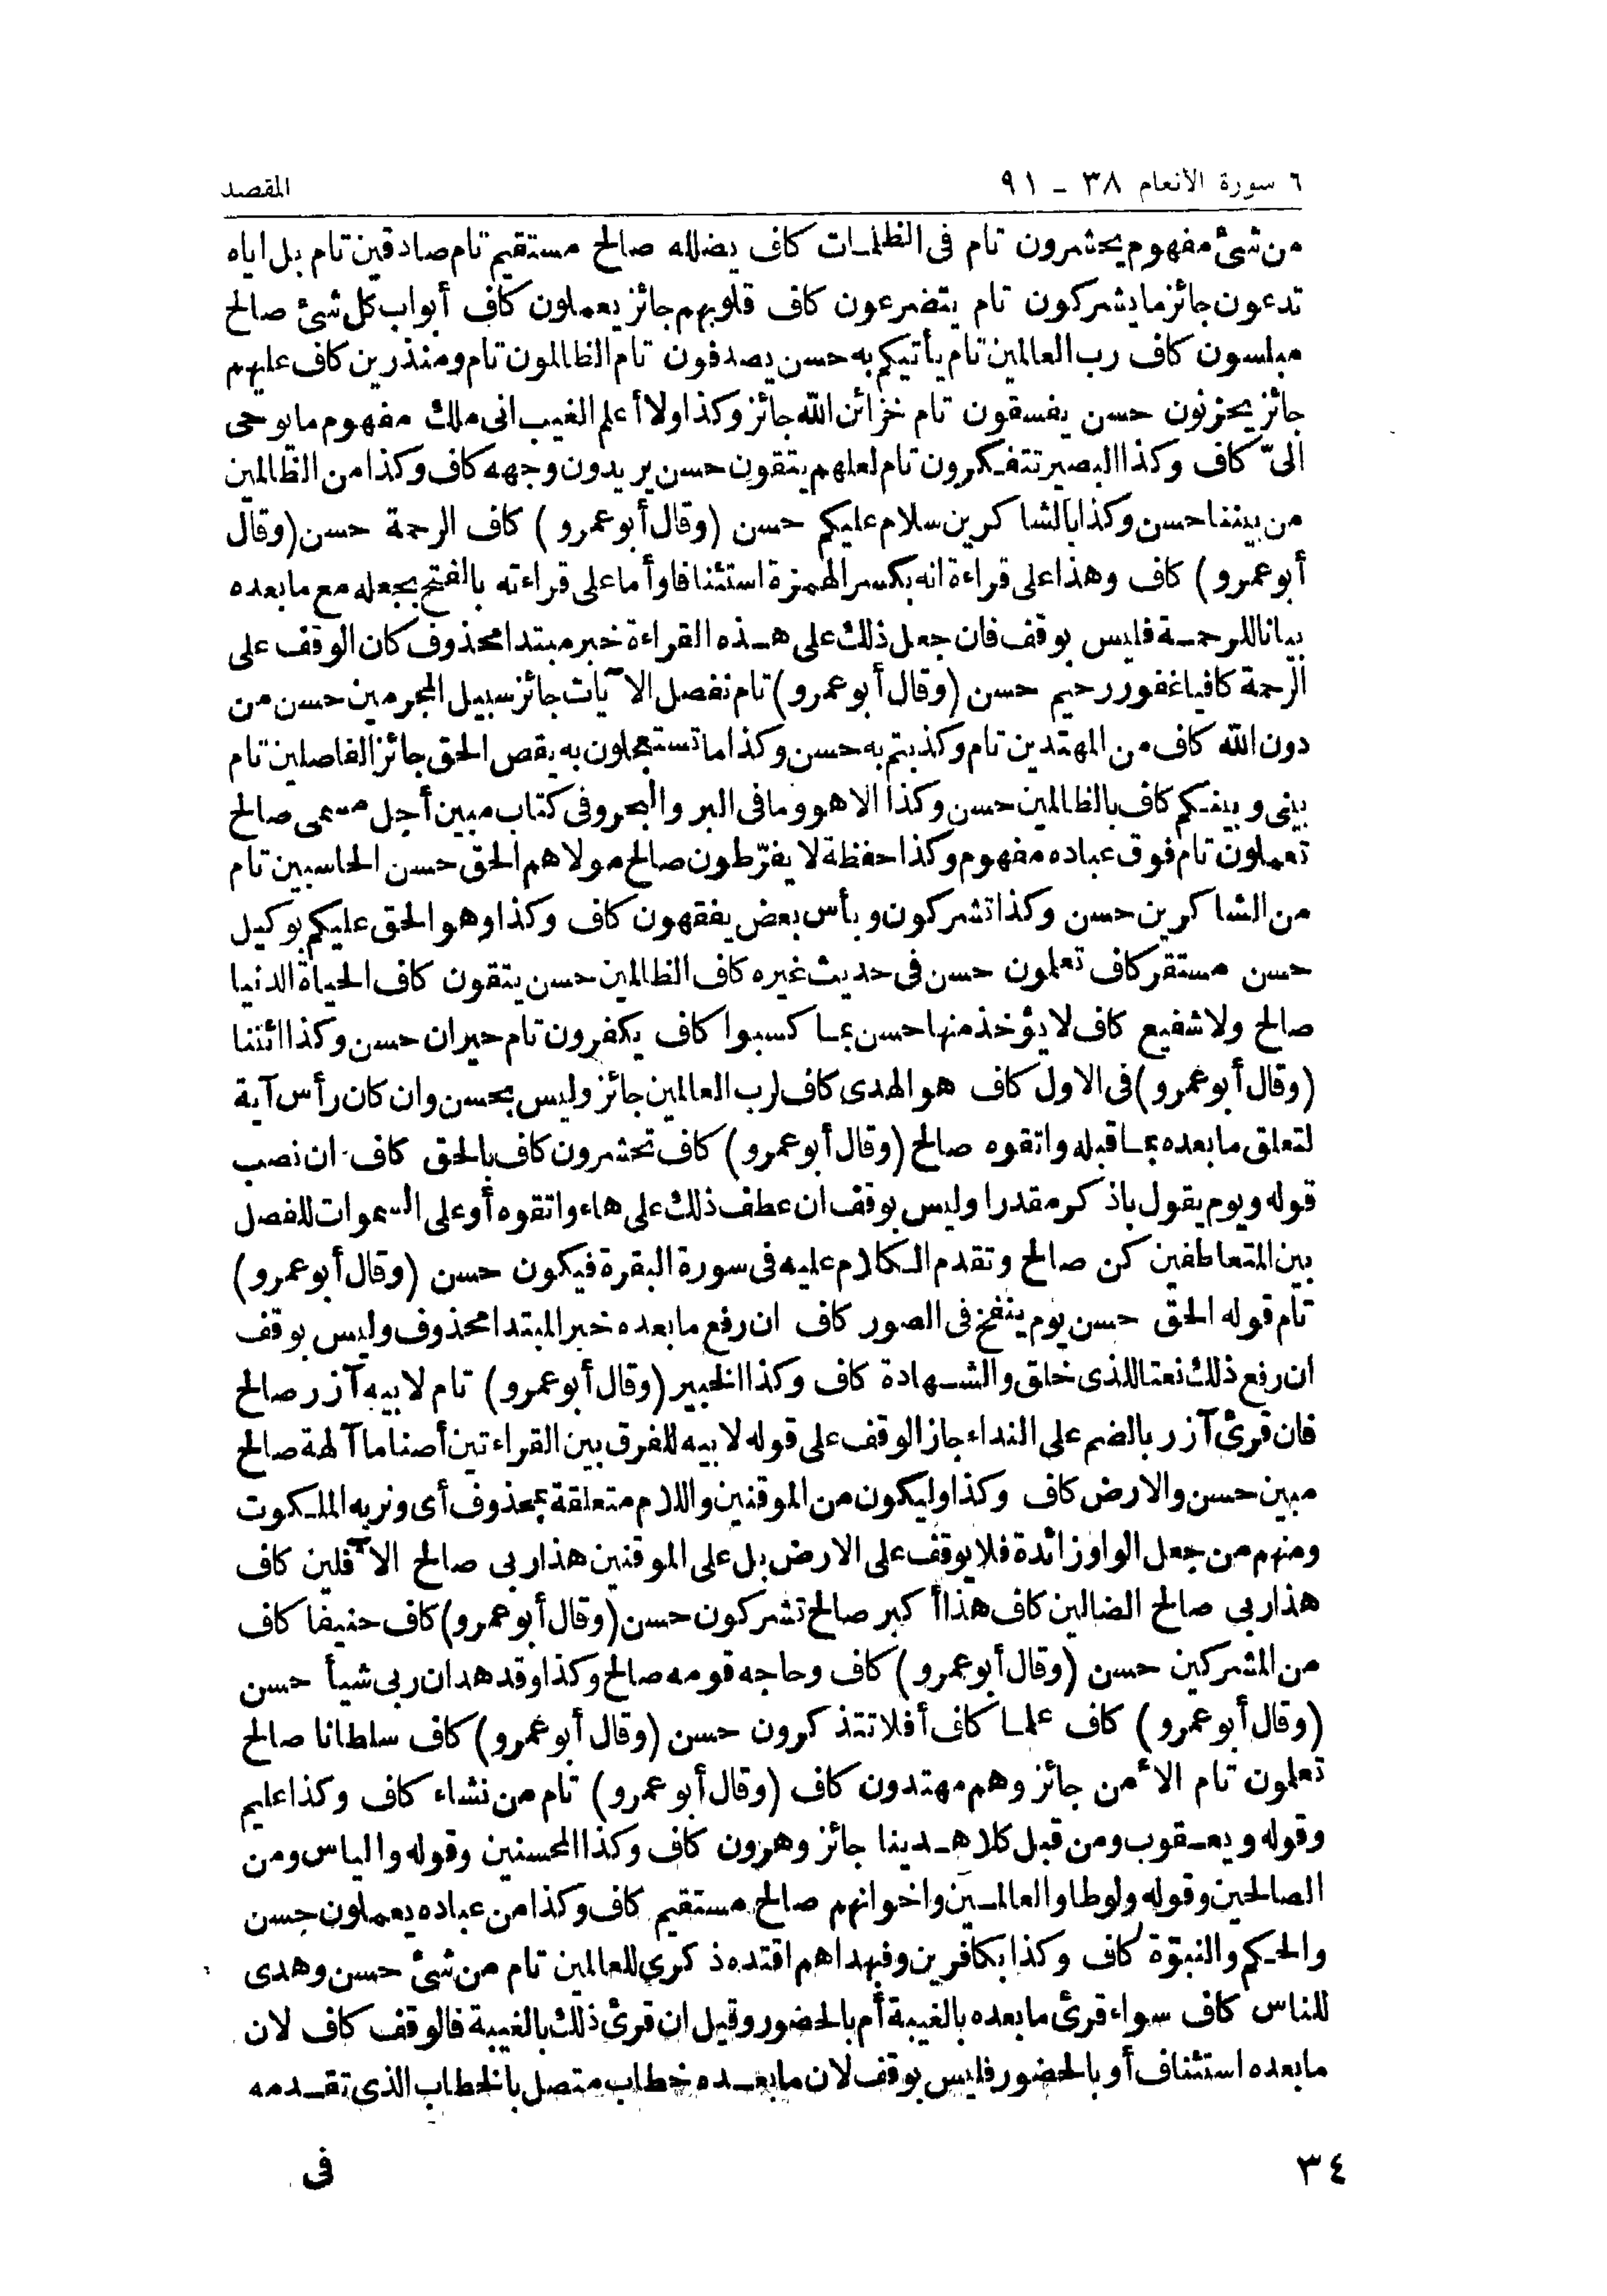 ٦ سورة الأنعام ٣٨ - ٩١
المقصد
من شئ مفهوم يحشرون تام فى الظلمات كاف يضلله صالح مستقيم تام صادقين تام بل اياه
تدعون جائز ما يشركون تام يتضرعون كاف قلوبهم جائز يعملون كاف أبواب كل شئ صالح
مبلسون كاف رب العالمين تام يأتيكم به حسن يصدفون تام الظالمون تام ومنذرين كاف عليهم
جائز يحزنون حسن يفسقون تام خزائن الله جائز وكذا ولا أعلم الغيب انى ملك مفهوم ما يوحى
الىّ كاف وكذا البصير تتفكرون تام لعلهم يتقون حسن يريدون وجهه كاف وكذا من الظالمين
من بيننا حسن وكذا بالشاكرين سلام عليكم حسن (وقال أبو عمرو) كاف الرحمة حسن (وقال
أبو عمرو) كاف وهذا على قراءة انه بكسر الهمزة استئنافا وأما على قراءته بالفتح بجعله مع ما بعده
بيانا للرحمة فليس بوقف فان جعل ذلك على هذه القراءة خبر مبتدا محذوف كان الوقف على
الرحمة كافيا غفور رحيم حسن (وقال أبو عمرو) تام نفصل الآيات جائز سبيل المجرمين حسن من
دون الله كاف من المهتدين تام وكذبتم به حسن وكذا ما تستعجلون به يقص الحق جائز الفاصلين تام
بينى وبينكم كاف بالظالمين حسن وكذا الا هو وما فى البر والبحر وفى كتاب مبين أجل مسمى صالح
تعملون تام فوق عباده مفهوم وكذا حفظة لا يفرّطون صالح مولاهم الحق حسن الحاسبين تام
من الشاكرين حسن وكذا تشركون وبأس بعض يفقهون كاف وكذا وهو الحق عليكم بوكيل
حسن مستقر كاف تعلمون حسن فى حديث غيره كاف الظالمين حسن يتقون كاف الحياة الدنيا
صالح ولا شفيع كاف لا يؤخذ منها حسن بما كسبوا كاف يكفرون تام حيران حسن وكذا ائتنا
(وقال أبو عمرو) فى الاول كاف هو الهدى كاف لرب العالمين جائز وليس بحسن وان كان رأس آية
لتعلق ما بعده بما قبله واتقوه صالح (وقال أبو عمرو) كاف تحشرون كاف بالحق كاف ان نصب
قوله ويوم يقول باذكر مقدرا وليس بوقف ان عطف ذلك على هاء واتقوه أو على السموات للفصل
بين المتعاطفين كن صالح وتقدم الكلام عليه فى سورة البقرة فيكون حسن (وقال أبو عمرو)
تام قوله الحق حسن يوم ينفخ فى الصور كاف ان رفع ما بعده خبر المبتدا محذوف وليس بوقف
ان رفع ذلك نعتا للذى خلق والشهادة كاف وكذا الخبير (وقال أبو عمرو) تام لابيه آزر صالح
فان قرئ آزر بالضم على النداء جاز الوقف على قوله لابيه للفرق بين القراءتين أصناما آلهة صالح
مبين حسن والارض كاف وكذا وليكون من الموقنين واللام متعلقة بمحذوف أى ونريه الملكوت
ومنهم من جعل الواو زائدة فلا يوقف على الارض بل على الموقنين هذا ربى صالح الآفلين كاف
هذا ربى صالح الضالين كاف هذا أكبر صالح تشركون حسن (وقال أبو عمرو) كاف حنيفا كاف
من المشركين حسن (وقال أبو عمرو) كاف وحاجه قومه صالح وكذا وقد هدان ربى شيأ حسن
(وقال أبو عمرو) كاف علما كاف أفلا تتذكرون حسن (وقال أبو عمرو) كاف سلطانا صالح
تعلمون تام الأمن جائز وهم مهتدون كاف (وقال أبو عمرو) تام من نشاء كاف وكذا عليم
وقوله ويعقوب ومن قبل كلا هدينا جائز وهرون كاف وكذا المحسنين وقوله والياس ومن
الصالحين وقوله ولوطا والعالمين واخوانهم صالح مستقيم كاف وكذا من عباده يعملون حسن
والحكم والنبوّة كاف وكذا بكافرين وفبهداهم اقتده ذكرى للعالمين تام من شئ حسن وهدى
للناس كاف سواء قرئ ما بعده بالغيبة أم بالحضور وقيل ان قرئ ذلك بالغيبة فالوقف كاف لان
ما بعده استئناف أو بالحضور فليس بوقف لان ما بعده خطاب متصل بالخطاب الذى تقدمه
فى
٣٤